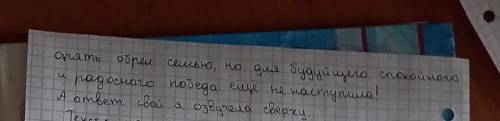 опять обрел семью, но для будущего спокойного
и радосного победа ещё не наступила!
А ответ свой я озвучела сверху.